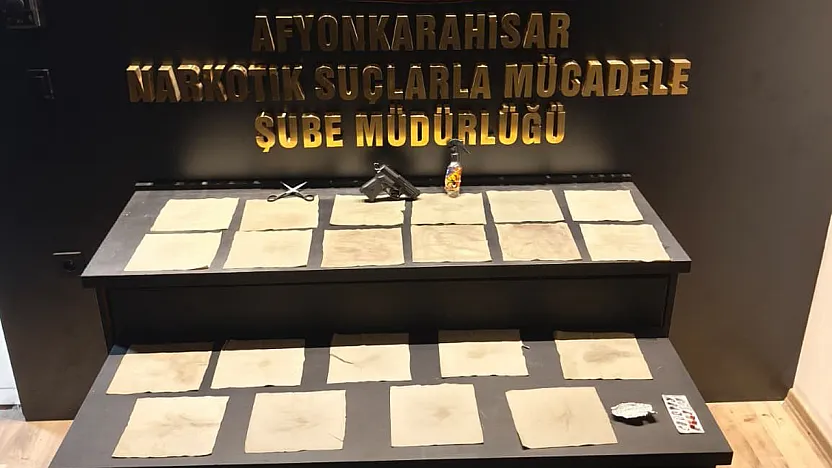 AFYONKARAHİSAR
NARKOTİK SUÇLARLA MÜCADELE
ŞUBE MÜDÜRLÜĞÜ